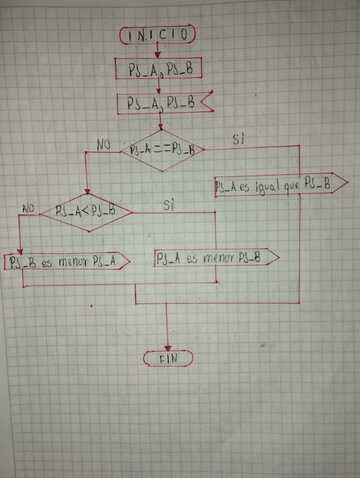 INICIO
PJ_A, PJ_B
PJ_A, PJ_B
NO
PJ_A==PJ_B
SÍ
PJ_A es igual que PJ_B
NO
PJ_A<PJ_B
SÍ
PJ_B es menor PJ_A
PJ_A es menor PJ_B
FIN